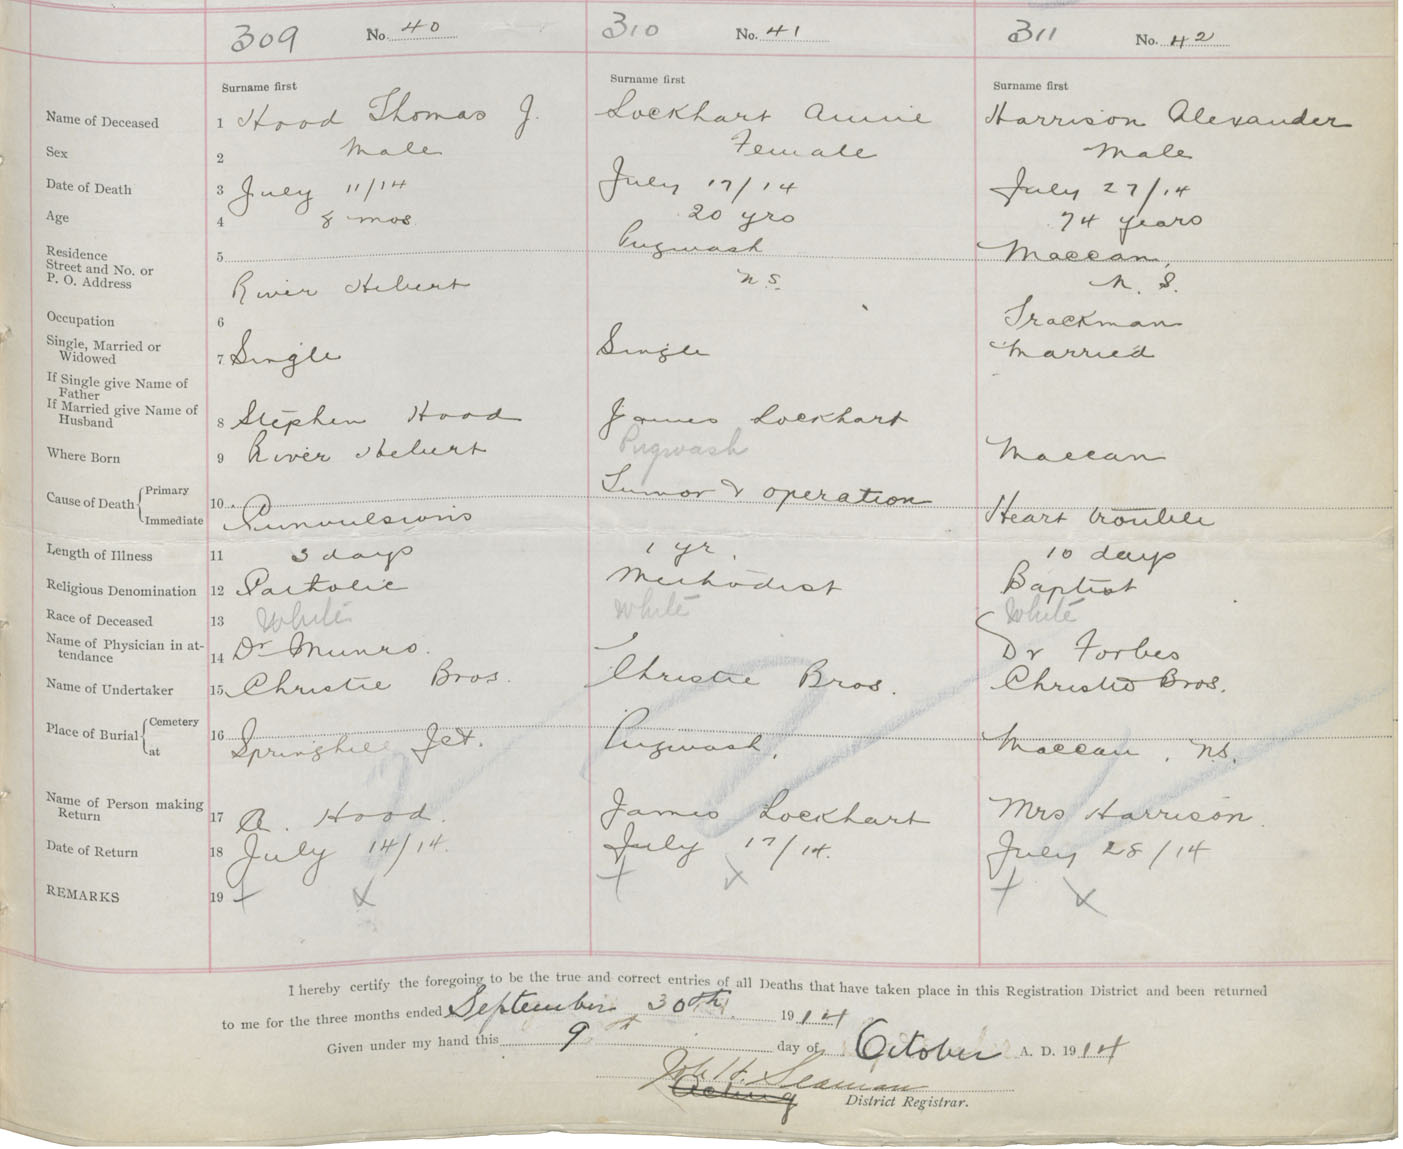 309 No. 40 310 No. 41 311 No. 42
Surname first Surname first Surname first
Name of Deceased 1 Hood Thomas J. Lockhart Annie Harrison Alexander
Sex 2 Male Female Male
Date of Death 3 July 11/14 July 17/14 July 27/14
Age 4 8 mos 20 yrs 74 years
Residence 5 Pugwash Maccan,
Street and No. or
P. O. Address River Hebert N.S. N. S.
Occupation 6 Trackman
Single, Married or
Widowed 7 Single Single Married
If Single give Name of
Father
If Married give Name of
Husband 8 Stephen Hood James Lockhart
Where Born 9 River Hebert Pugwash Maccan
Cause of Death Primary 10 Tumor & operation
Immediate Cunvulsions Heart trouble
Length of Illness 11 3 days 1 yr. 10 days
Religious Denomination 12 Catholic Methodist Baptist
Race of Deceased 13 White White White
Name of Physician in at-
tendance 14 Dr Munro. Dr Forbes
Name of Undertaker 15 Christie Bros. Christie Bros. Christie Bros.
Place of Burial Cemetery 16
at Springhill Jct. Pugwash, Maccan, N.S.
Name of Person making
Return 17 A. Hood. James Lockhart Mrs Harrison.
Date of Return 18 July 14/14. July 17/14. July 28/14
REMARKS 19 + x + x + x
I hereby certify the foregoing to be the true and correct entries of all Deaths that have taken place in this Registration District and been returned
to me for the three months ended September 30th 1914
Given under my hand this 9th day of October A. D. 1914
H. Seaman
Acting District Registrar.